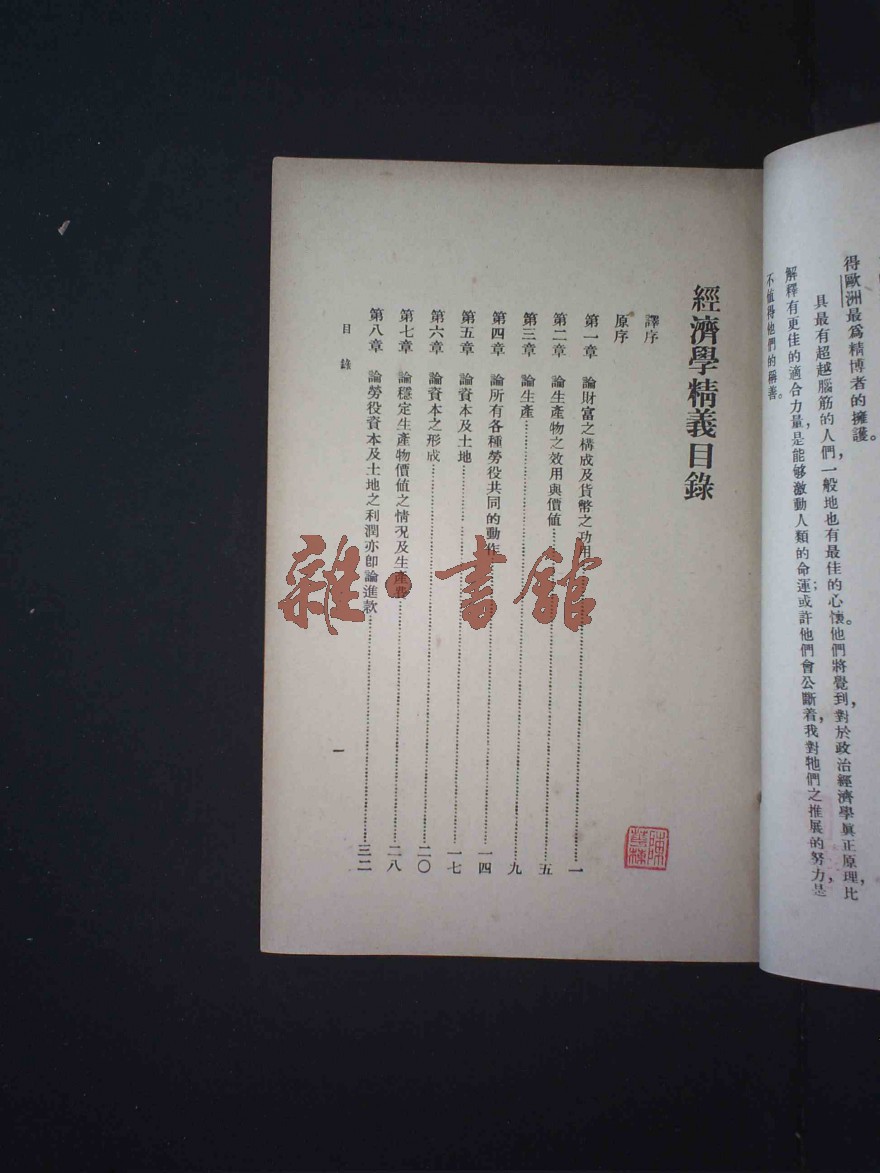 得歐洲最爲精博者的擁護。
具最有超越腦筋的人們，一般地也有最佳的心懷。他們將覺到，對於政治經濟學眞正原理，比
解釋有更佳的適合力量，是能够激動人類的命運；或許他們會公斷着，我對牠們之推展的努力，是
不值得他們的稱善。
經濟學精義目錄
譯序
原序
第一章 論財富之構成及貨幣之功用……一
第二章 論生產物之效用與價値……五
第三章 論生產……九
第四章 論所有各種勞役共同的動作……一四
第五章 論資本及土地……一七
第六章 論資本之形成……二〇
第七章 論穩定生產物價値之情況及生產費……二八
第八章 論勞役資本及土地之利潤亦卽論進款……三二
目錄
一
雜·書館